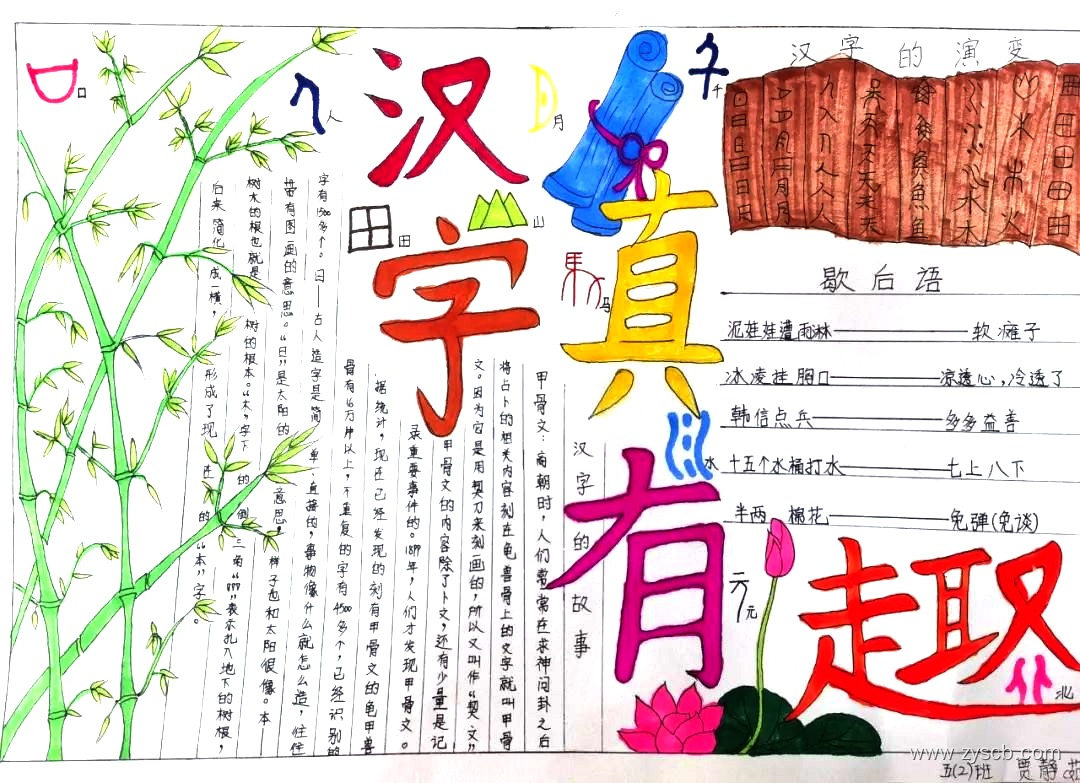 汉字真有趣
口
人
月
千
田
山
马
水
元
北
汉字的演变
歇后语
泥娃娃遭雨淋——软瘫子
冰凌挂胸口——凉透心，冷透了
韩信点兵——多多益善
十五个水桶打水——七上八下
半两棉花——免弹(免谈)
汉字的故事
甲骨文：商朝时，人们常常在求神问卦之后
将占卜的相关内容刻在龟兽骨上的文字就叫甲骨
文。因为它是用契刀来刻画的，所以又叫作“契文”
甲骨文的内容除了卜文，还有少量是记
录重要事件的。1899年，人们才发现甲骨文。
据统计，现在已经发现的刻有甲骨文的龟甲兽
骨有16万片以上，不重复的字有4500多个，已经识别的
字有1500多个。日——古人造字是简单、直接的，事物像什么就怎么造，往往
带有图画的意思。“日”是太阳的意思，样子也和太阳很像。本
树木的根也就是树的根本。“木”字下的倒三角表示扎入地下的树根，
后来简化成一横，形成了现在的“本”字。
五(2)班 贾静
www.zyscb.com